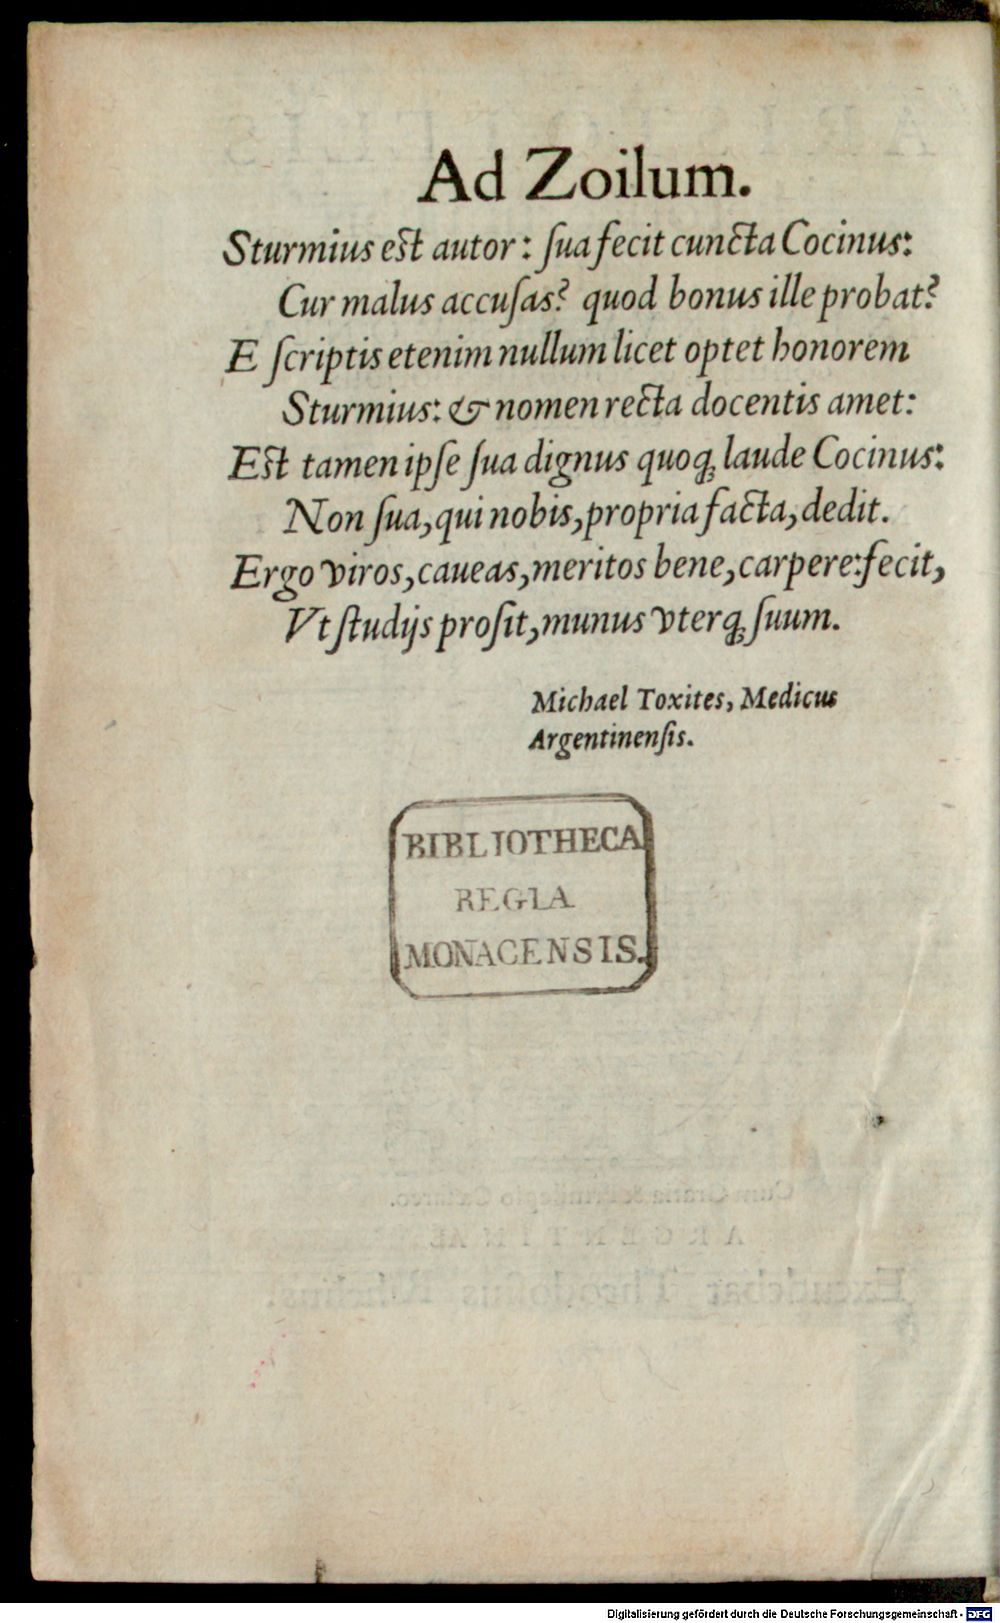 Ad Zoilum.
Sturmius est autor: ſua fecit cuncta Cocinus:
Cur malus accuſas? quod bonus ille probat?
E ſcriptis etenim nullum licet optet honorem
Sturmius: & nomen recta docentis amet:
Est tamen ipſe ſua dignus quoq; laude Cocinus:
Non ſua, qui nobis, propria facta, dedit.
Ergo viros, caueas, meritos bene, carpere: fecit,
Vt ſtudijs proſit, munus vterq; ſuum.
Michael Toxites, Medicus
Argentinenſis.
BIBLIOTHECA
REGIA
MONACENSIS.
Digitalisierung gefördert durch die Deutsche Forschungsgemeinschaft - DFG